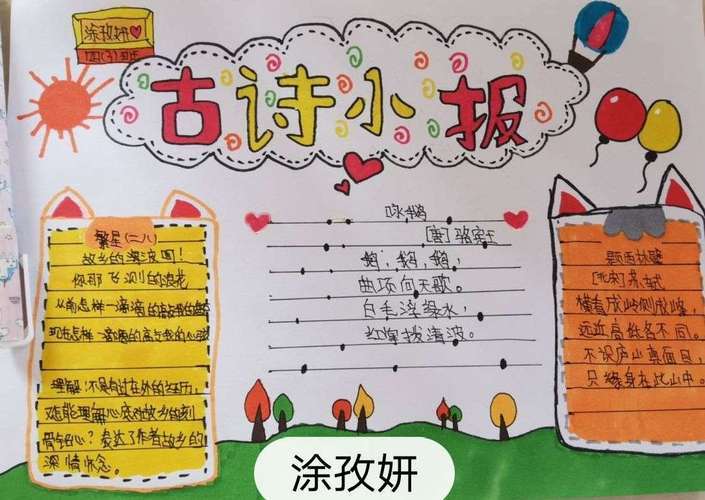 涂孜妍
古诗小报
繁星(二八)
故乡的海波呀!
你那飞溅的浪花
从前怎样一滴滴的敲我的
现在怎样一滴滴的敲我的心弦
理解:不是有过在外的经历,
怎能理解心底对故乡的刻
骨铭心?表达了作者故乡的
深情怀念。
咏鹅
[唐]骆宾王
鹅,鹅,鹅,
曲项向天歌。
白毛浮绿水,
红掌拨清波。
题西林壁
[北宋]苏轼
横看成岭侧成峰,
远近高低各不同。
不识庐山真面目,
只缘身在此山中。
涂孜妍